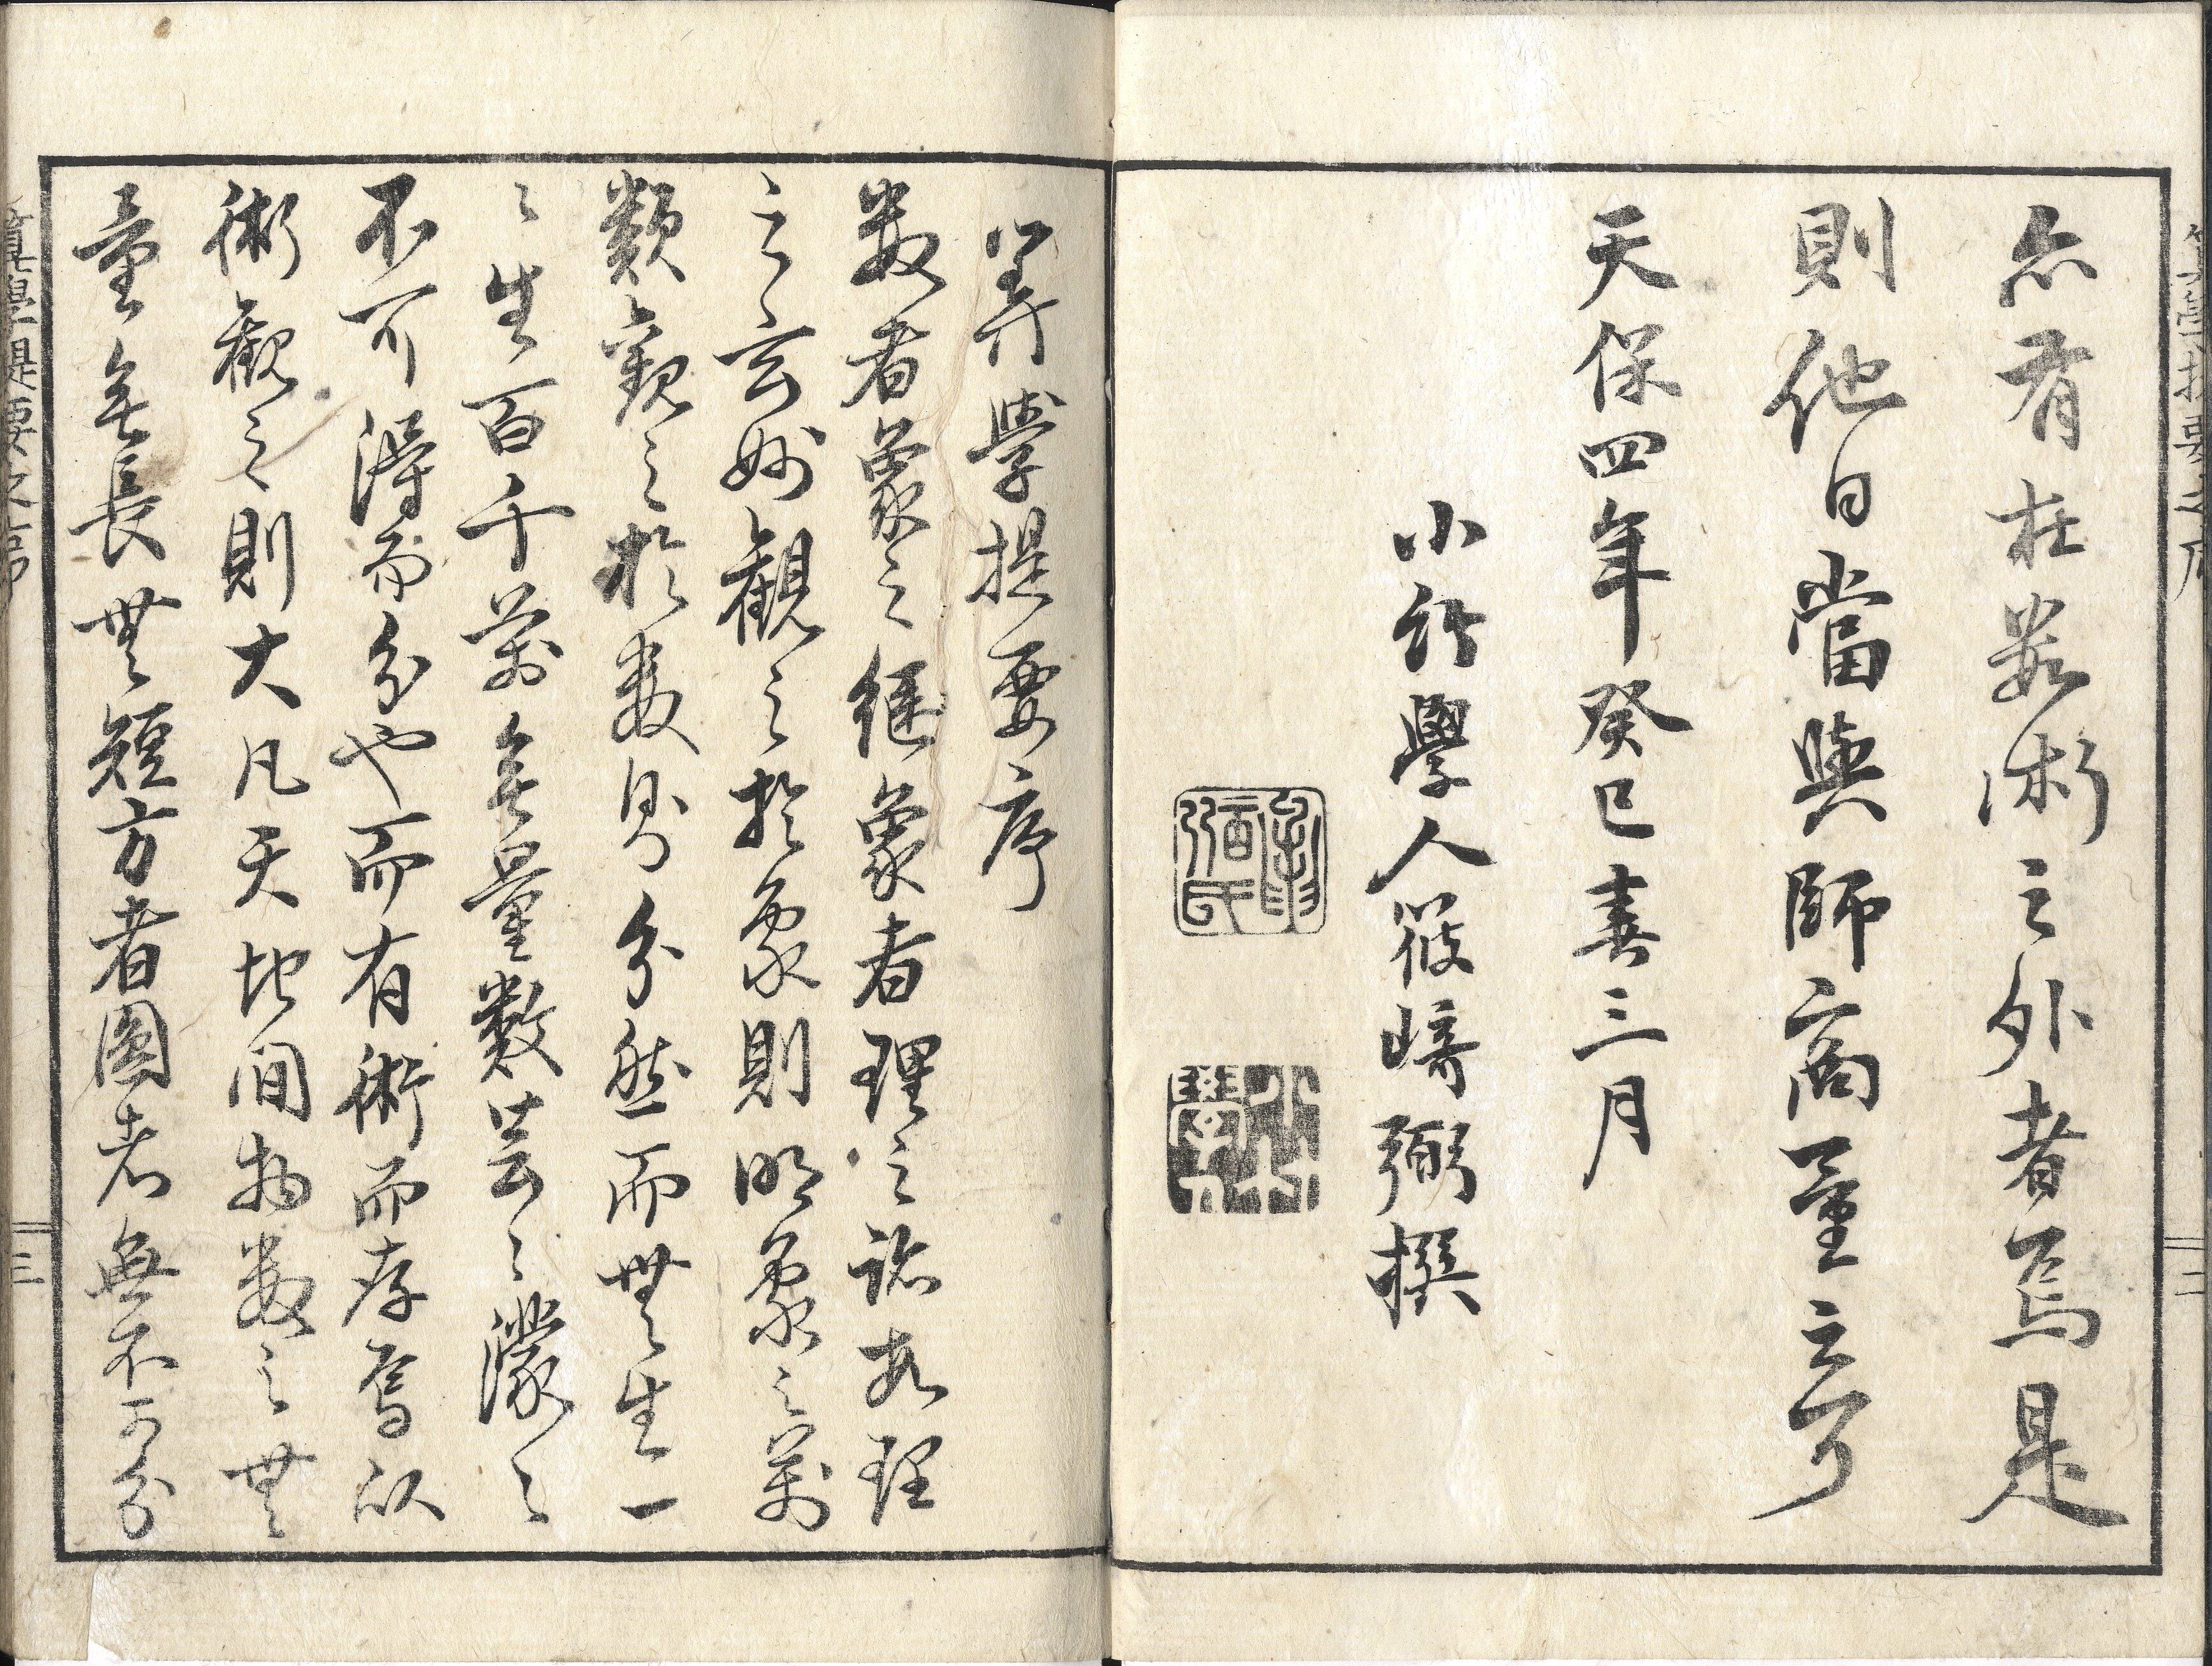 亦有在數術之外者焉是
則他日當與師商量之可
天保四年癸巳春三月
小竹學人筱﨑弼撰
筭學提要序
數者象之繩象者理之諭故理
之玄妙觀之於象則明象之萬
類觀之於數則分然而無生一
〻生百千萬無量數芸〻濛〻
不可得而分也而有術而存焉以
術觀之則大凡天地間物數之無
量無長無短方者圓者無不可分
算學提要之序
二
三